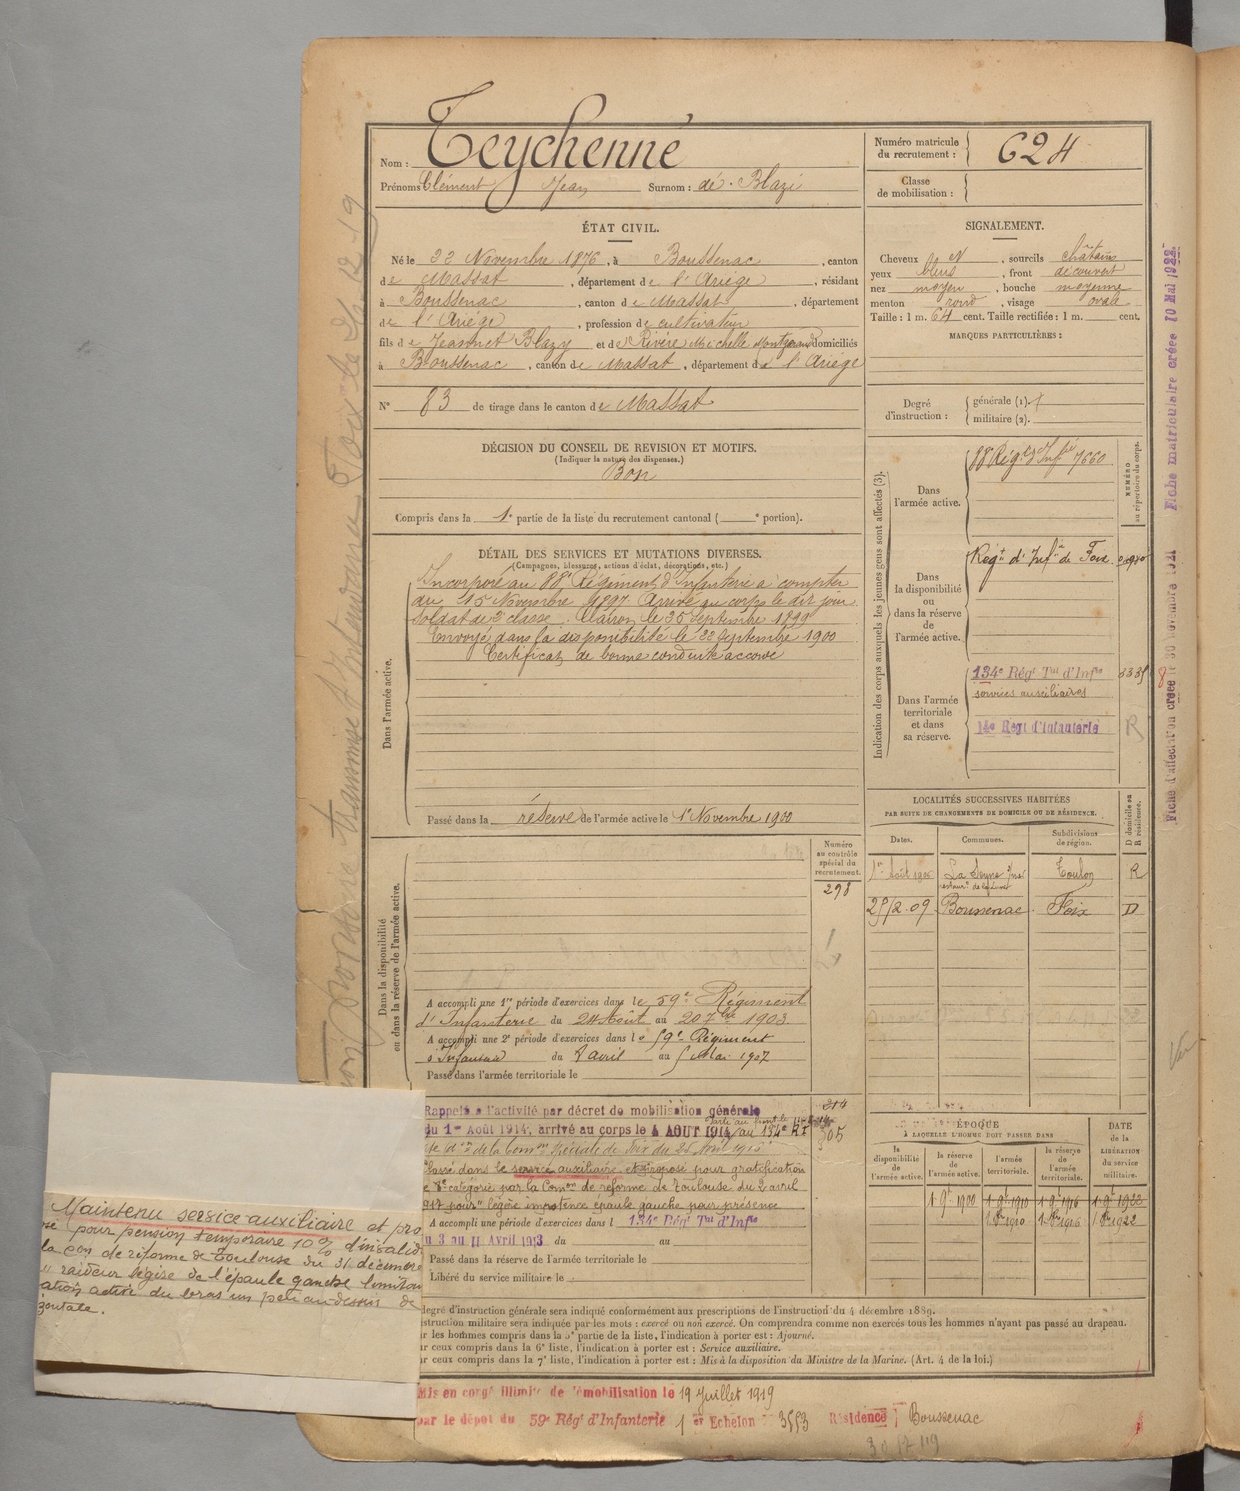 Nom : Teychenné
Prénoms Clément Jean Surnom : dé. Blazi
Numéro matricule
du recrutement : 624
Classe
de mobilisation :
ÉTAT CIVIL.
Né le 22 Novembre 1876, à Boussenac, canton
de Massat, département de l'Ariège, résidant
à Boussenac, canton de Massat, département
de l'Ariège, profession de cultivateur
fils de Jeannet Blazy et de Rivère Michelle domiciliés
à Boussenac, canton de Massat, département de l'Ariège
N° 83 de tirage dans le canton de Massat
DÉCISION DU CONSEIL DE REVISION ET MOTIFS.
(Indiquer la nature des dispenses.)
Bon
Compris dans la 1e partie de la liste du recrutement cantonal ( e portion).
SIGNALEMENT.
Cheveux N, sourcils châtains
yeux bleus, front découvert
nez moyen, bouche moyenne
menton rond, visage ovale
Taille : 1 m. 64 cent. Taille rectifiée : 1 m. cent.
MARQUES PARTICULIÈRES :
Degré
d'instruction :
générale (1).
militaire (2).
DÉTAIL DES SERVICES ET MUTATIONS DIVERSES.
(Campagnes, blessures, actions d'éclat, décorations, etc.)
Dans l'armée active.
Incorporé au 88e Régiment d'Infanterie à compter
du 15 Novembre 1897 Arrivé au corps le dit jour
soldat de 2e classe. Clairon le 25 Septembre 1899
Envoyé dans la disponibilité le 22 Septembre 1900
Certificat de bonne conduite accordé
Passé dans la réserve de l'armée active le 1er Novembre 1900
Indication des corps auxquels les jeunes gens sont affectés (3).
NUMÉRO
au répertoire du corps.
Dans
l'armée active.
88 Régt d'Infie 7660
Dans
la disponibilité
ou
dans la réserve
de
l'armée active.
Régt d'Infie de Foix
Dans l'armée
territoriale
et dans
sa réserve.
134e Régt Tal d'Infie
services auxiliaires
14e Régt d'Infanterie
R
LOCALITÉS SUCCESSIVES HABITÉES
PAR SUITE DE CHANGEMENTS DE DOMICILE OU DE RÉSIDENCE.
Dates. Communes. Subdivisions
de région. D domicile ou
R résidence.
1er Août 1906 La Seyne Toulon R
25/2.09 Boussenac. Foix D
Dans la disponibilité
ou dans la réserve de l'armée active.
Numéro
au contrôle
spécial du
recrutement.
298
A accompli une 1re période d'exercices dans le 59e Régiment
d'Infanterie du 24 Août au 20 7bre 1903.
A accompli une 2e période d'exercices dans le 59e Régiment
d'Infanterie du 8 avril au 5 Mai 1907
Passé dans l'armée territoriale le
Rappelé à l'activité par décret de mobilisation générale
du 1er Août 1914, arrivé au corps le 4 AOUT 1914 au 134e RT
Classé dans le service auxiliaire et proposé pour gratification
de 8e catégorie par la Comon de réforme de Toulouse du 2 avril
1917 pour légère impotence épaule gauche par présence
A accompli une période d'exercices dans l 134e Régt Tal d'Infie
du 3 au 11 Avril 1913 du au
Passé dans la réserve de l'armée territoriale le
Libéré du service militaire le
ÉPOQUE
À LAQUELLE L'HOMME DOIT PASSER DANS
DATE
de la
LIBÉRATION
du service
militaire.
la
disponibilité
de
l'armée active.
la réserve
de
l'armée active.
l'armée
territoriale.
la réserve
de
l'armée
territoriale.
1 9bre 1900 1 9bre 1910 1 9bre 1916 1 9bre 1922
degré d'instruction générale sera indiqué conformément aux prescriptions de l'instruction du 4 décembre 1889.
struction militaire sera indiquée par les mots : exercé ou non exercé. On comprendra comme non exercés tous les hommes n'ayant pas passé au drapeau.
ur les hommes compris dans la 5e partie de la liste, l'indication à porter est : Ajourné.
ur ceux compris dans la 6e liste, l'indication à porter est : Service auxiliaire.
ur ceux compris dans la 7e liste, l'indication à porter est : Mis à la disposition du Ministre de la Marine. (Art. 4 de la loi.)
Mis en congé illimité de démobilisation le 19 Juillet 1919
par le dépot du 59e Régt d'Infanterie 1er Echelon 3553 Résidence Boussenac
Maintenu service auxiliaire et pro
sé pour pension temporaire 10% d'invalid
la con de réforme de Toulouse du 31 décembre
raideur légère de l'épaule gauche limitan
ation active du bras un peu au dessus de
zontale.
Fiche d'affectation créée le 30 novembre 1921 Fiche matriculaire créée 10 Mai 1922